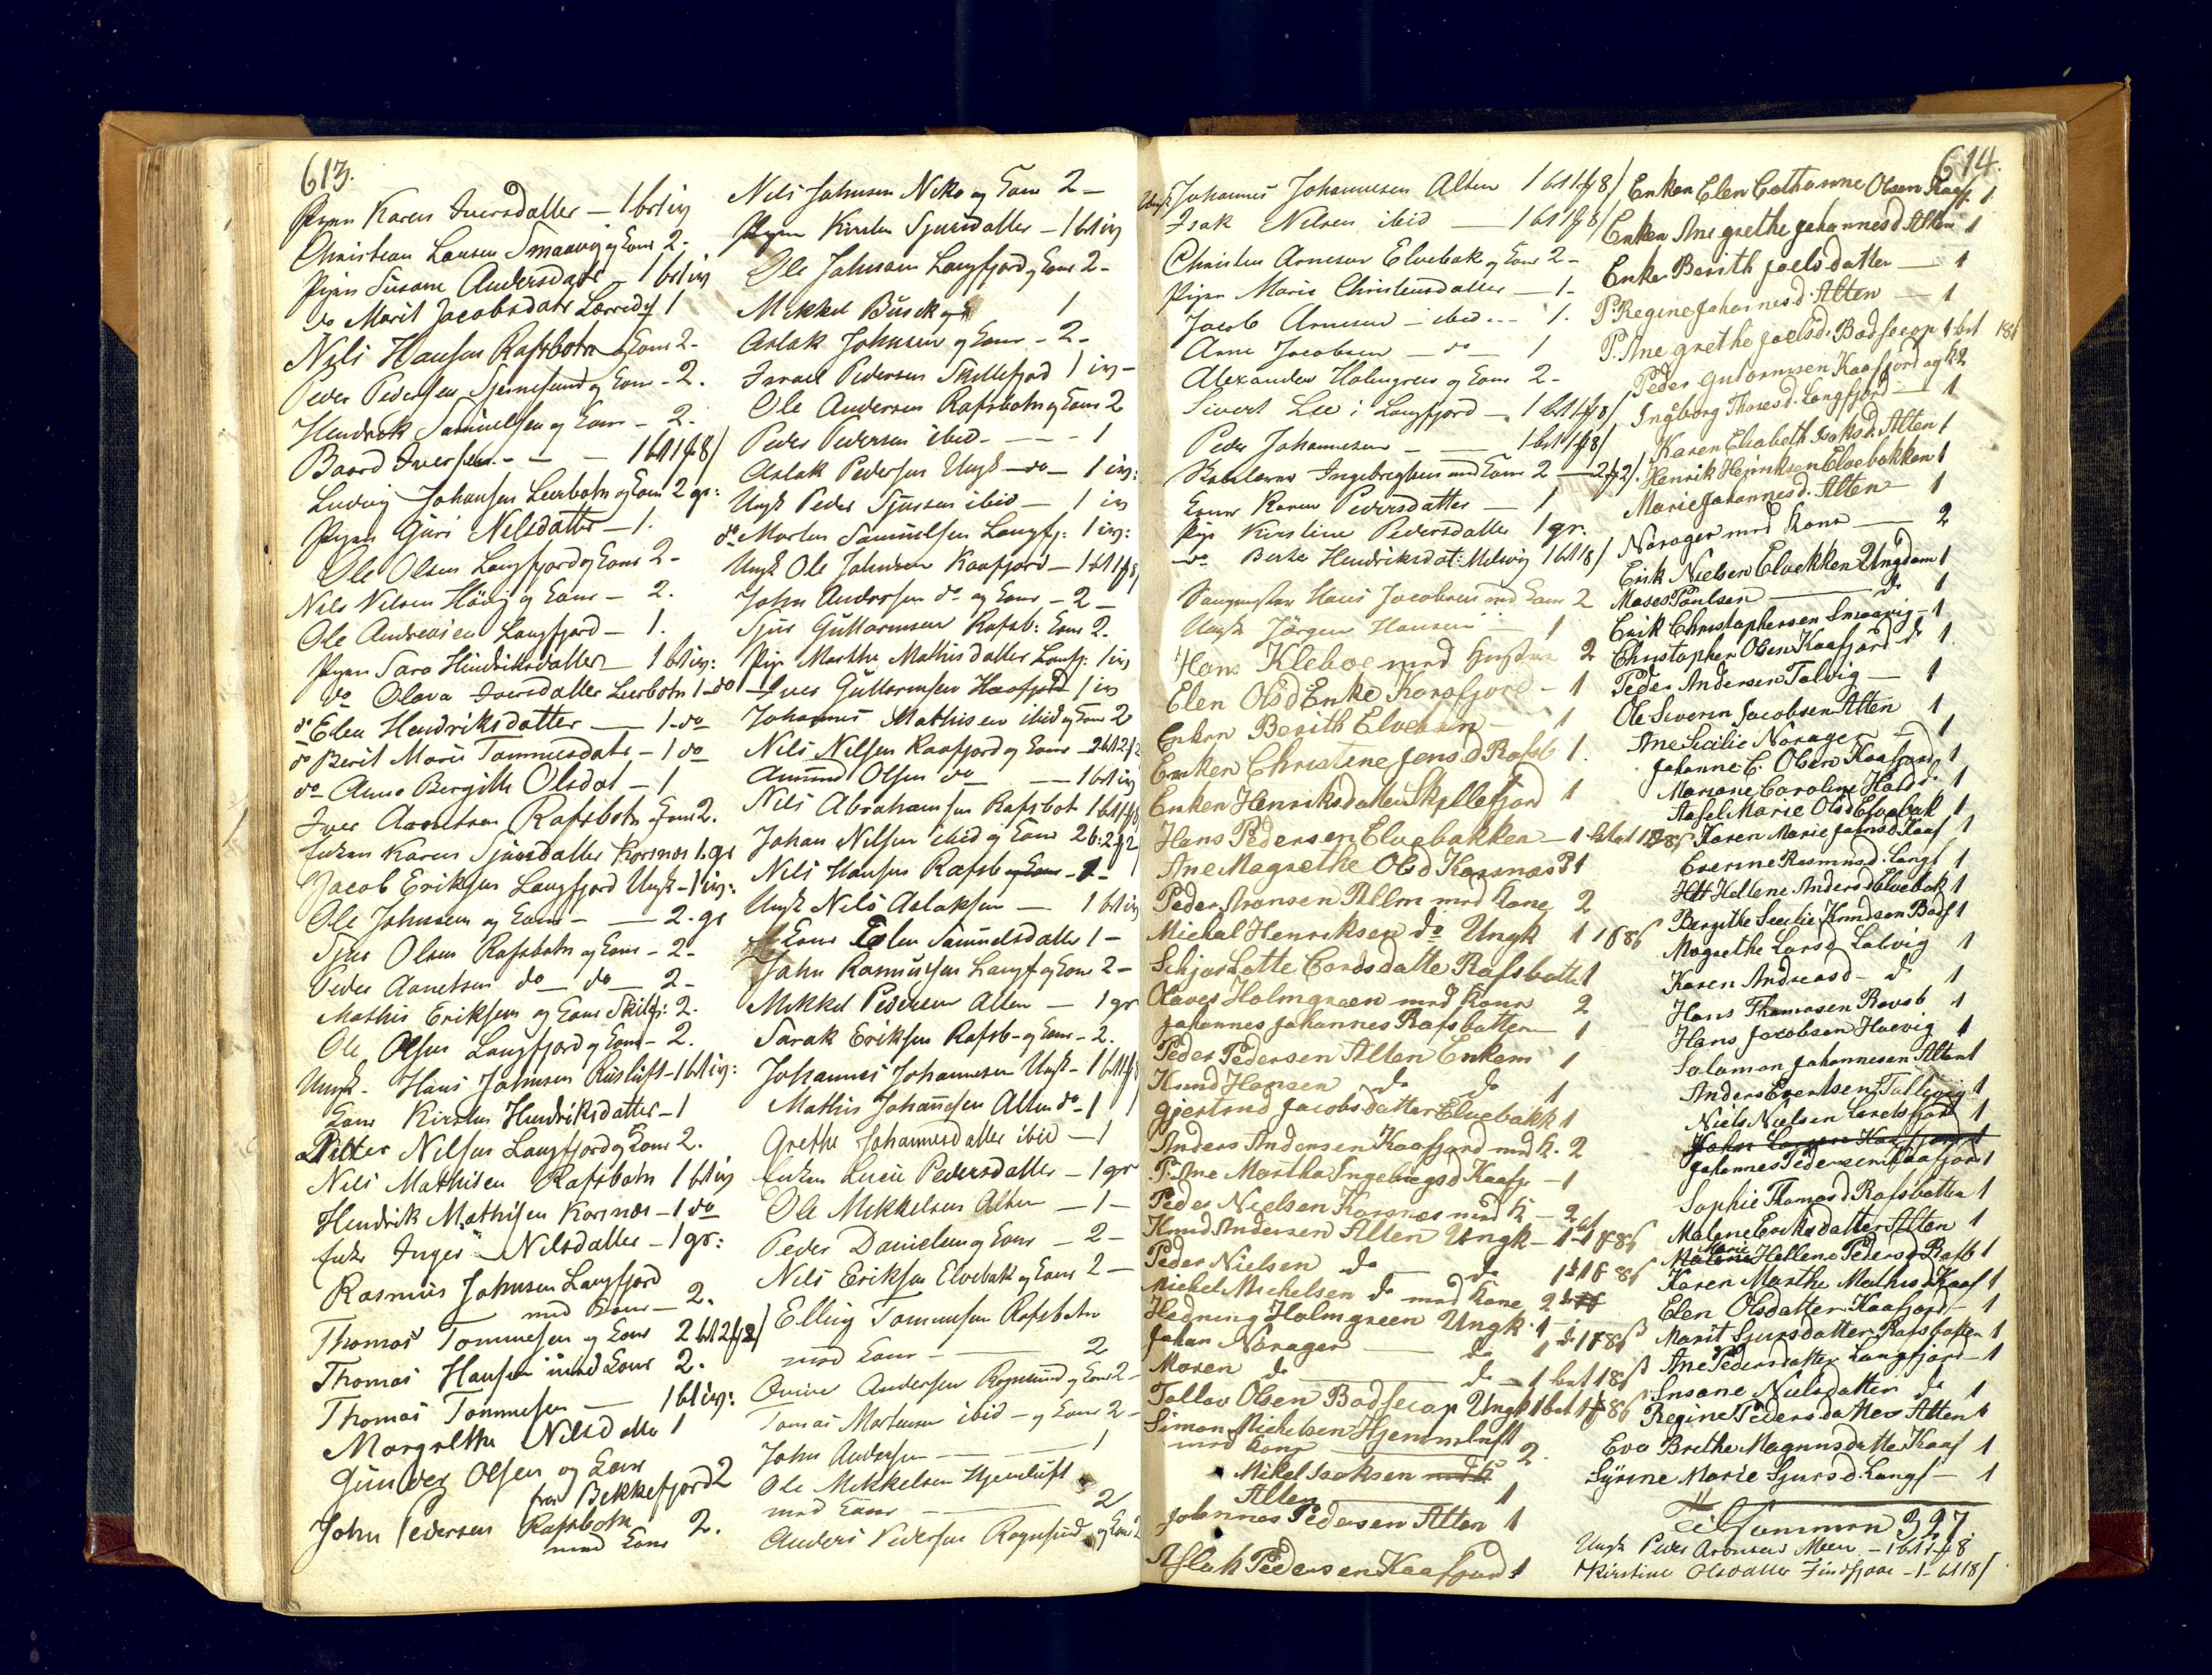 613.
Pigen Karen Iversdatter — 1 bet iv
Christian Larsen Smaavig og Kone 2.
Pigen Susane Andersdatr — 1 bet iv
do Marit Jacobsdatr Lerresfj 1
Nils Hansen Rafsbotn og Kone 2 -
Peder Pedersen Stjernesund og Kone - 2.
Hendrik Samuelsen og Kone - 2.
Baard Iversen - - - 1 bet 1 f 8 /
Ludvig Johansen Leerbotn og Kone 2 gr:
Pigen Guri Nilsdatter — 1.
Ole Olsen Langfjord og Kone 2 -
Nils Nilsen Hávig og Kone - 2.
Ole Andreasen Langfjord - 1.
Pigen Sara Hendriksdatter — 1 bet iv:
do Olava Iversdatter Leerbotn 1 - do
do Elen Hendriksdatter — 1 - do
do Berit Maris Tommesdatr - 1 do
do Anne Bergithe Olsdat - 1
Iver Anretsen Rafsbotn og Kone 2.
Enken Karen Sjursdatter Korsnæs 1. gr
Jacob Eriksen Langfjord Ungk - 1 iv:
Ole Johnsen og Kone - — 2. gr
Sjur Olsen Rafsbotn og Kone - 2 -
Peder Anretsen do — do — 2 -
Mathis Eriksen og Kone Skillf: 2.
Ole Olsen Langfjord og Kone - 2.
Ungk. Hans Johnsen Rusluft - 1 bet iv:
Kone Kirsten Hendriksdatter - 1
Petter Nilsen Langfjord og Kone 2.
Nils Mathisen Rafsbotn 1 bet iv
Hendrik Mathisen Korsnæs - 1 do
Enke Inger Nilsdatter - 1 gr:
Rasmus Johnsen Langfjord
med Kone — 2.
Thomas Tommesen og Kone 2 bet 2 f 2 /
Thomas Hansen med Kone 2.
Thomas Tommesen — 1 bet iv:
Margrethe Nilsdatter 1
Gunder Olsen og Kone
fra Bekkefjord 2
John Pedersen Rafsbotn
med Kone 2.
Nils Johnsen Niko og Kone 2 -
Pigen Kirsten Sjursdatter — 1 bet iv
Ole Johnsen Langfjord og Kone 2 -
Mikkel Busck og 1
Aslak Johnsen og Kone - 2 -
Israel Pedersen Skillefjord 1 iv -
Ole Andersen Rafsbotn og Kone 2
Peder Pedersen ibid - - - - 1
Aslak Pedersen Ungk - do - 1 iv:
Ungk Peder Sjursen ibid - 1 iv
do Morten Samuelsen Langfj: 1 iv:
Ungk Ole Johnsen Kaafjord - 1 bet 1 f 8 /
John Andersen do og Kone - 2 -
Sjur Guttormsen Rafsb: Kone 2.
Pige Marthe Mathisdatter Langfj: 1 iv
Iver Guttormsen Kaafjord 1 iv
Johannes Mathisen ibid og Kone 2
Nils Nilsen Kaafjord og Kone - 2 bet 2 f 2
Amund Olsen do — — 1 bet iv
Nils Abrahamsen Rafsbot 1 bet 1 f 8
Johan Nilsen ibid og Kone 2 b: 2 f 2 /
Nils Hansen Rafsb og Kone - 1 -
Ungk Nils Aslaksen — 1 bet iv
Kone Elen Samuelsdatter 1 -
John Rasmusen Langf og Kone 2 -
Mikkel Pedersen Alten — 1 gr
Sarak Eriksen Rafsb - og Kone - 2.
Johannes Johannesen Ungk - 1 bet 1 f 8
Mathis Johannesen Alten do - 1
Grethe Johannesdatter ibid - 1
Enken Lucie Pedersdatter - 1 gr
Ole Mikkelsen Alten — 1 -
Peder Danielsen og Kone - 2 -
Nils Eriksen Elvebak og Kone 2 -
Elling Tommesen Rafsbotn
med Kone - — 2
Qvive Andersen Rognsund og Kone 2 -
Tomas Mortensen ibid - og Kone 2 -
John Andersen - — — 1
Ole Mikkelsen Hjemluft
med Kone - — 2
Anders Pedersen Rognsund og Kone 2
614.
Ungk Johannes Johannesen Alten 1 bet 1 f 8 /
Isak Nilsen ibid — 1 bet 1 f 8 /
Christen Arnesen Elvebak og Kone 2 -
Pigen Maris Christensdatter — 1 -
Jacob Arnesen - ibid - - 1.
Arne Jacobsen — do — 1
Alexander Holmgreen og Kone 2 -
Sivert Lee i Langfjord — 1 bet 1 f 8 /
Peder Johannesen — — 1 bet 1 f 8 /
Skolelærer Ingebregtsen med Kone 2 — 2 f 2 /
Kone Karen Pedersdatter — 1
Pige Kirstine Pedersdatter 1 gr.
do Berte Hendriksdat: Melsvig 1 bet 18 /
Sangmester Hans Jacobsen med Kone 2
Ungk Jörgen Hansen — 1
Hans Kleboe med Hustru 2
Elen Olsd Enke Korsfjord - 1
Enken Berith Elvebak - 1
Enken Christine Jensd Rafsb 1.
Enken Henriksdatter Skillefjord 1
Hans Pedersen Elvebakken - 1 betalt 1 f 8 ß
Ane Magrethe Olsd Korsnæs P 1
Peder Aronsen Allm med Kone 2
Michel Henriksen do Ungk 1 1 f 8 ß
Schjarlotte Cordsdatte Rafsbotte 1
Olaves Holmgreen med Kone 2
Johannes Johannes Rafsbotten — 1
Peder Pedersen Alten Enkem 1
Knud Hansen do do 1
Gjertrud Jacobsdatter Elvebakk 1
Anders Andersen Kaafjord med K. 2
P. Ane Martha Ingebregsd Kaafj - 1
Peder Nielsen Korsnæs med K - 2
Knud Andersen Alten Ungk - 1 bet 1 f 8 ß
Peder Nielsen do — do 1 b 1 f 8 ß
Michel Michelsen do med Kone 2
Hedning Holmgreen Ungk. 1
Johan Norager — do 1 b 1 f 8 ß
Maren do — do - 1 bet 18 ß
Tollav Olsen Bodsecop Ungk 1 bet 1 f 8 ß
Simon Michelsen Hjemmeluft
med Kone — 2.
Mikel Isaksen med K
Alten — 1
Johannes Pedersen Alten 1
Aslak Pedersen Kaafjord 1
Enken Elen Cathorinne Olsen Kaafj. 1
Enken Ane grethe Johannesd Alten 1
Enke Berith Joelsdatter — 1
P. Regine Johannesd. Alten — 1
P. Ane grethe Joelsd. Bodsecop 1 bet 18 ß
Peder Guttormsen Kaafjord og K 2
Ingborg Thoresd. Langfjord — 1
Karen Elisabeth Isaksd. Alten 1
Henrik Henriksen Elvebakken 1
Marie Johannesd. Alten - 1
Norager med Kone — 2
Erik Nielsen Elvekken Ungdom 1
Moses Poulsen — do 1
Erik Christophersen Smaavig - 1
Christopher Olsen Kaafjord do 1
Peder Andersen Talvig — 1
Ole Severin Jacobsen Alten 1
Ane Secilie Norager — 1
Johanne C. Olsen Kaafjord 1
Mariane Caroline Hald do 1
Aasel Marie Olsd Elvebak 1
Karen Marie Johnsd Kaaf 1
Everine Rasmusd. Langf 1
Hellene Andersd Elvebak 1
Bergithe Secilie Knudsen Bods 1
Magrethe Larsd Talvig 1
Karen Andreasd - do 1
Hans Thomasen Ravsb 1
Hans Jacobsen Haevig 1
Salamon Johannesen Alten 1
Anders Evertsen Tallevig 1
Niels Nielsen Lerresfjord 1
Johan Larsen Kaafjord 1
Johannes Pedersen Kaafjord 1
Sophie Thomasd Rafsbotten 1
Malene Eriksdatter Alten 1
Marie Hellene Pedersd Rafb 1
Karen Marthe Mathisd Kaaf 1
Elen Olsdatter Kaafjord - 1
Marit Sjursdatter Rafsbotten 1
Ane Pedersdatter Langfjord - 1
Susane Nielsdatter do 1
Regine Pedersdatter Alten 1
Eva Brethe Magnusdatte Kaaf 1
Syrine Marie Sjursd. Langf - 1
Tilsammen 397
Ungk Peder Aronsen Meen - 1 bet 1 f 8
Kirstine Olsdatter Findfjorr - 1 - bet 18 /